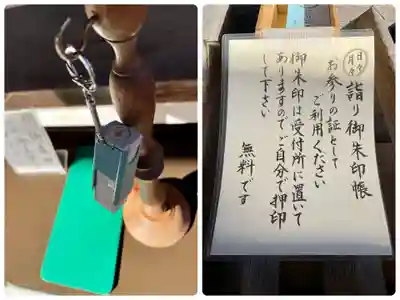 日々
月々
詣り御朱印帳
お参りの証として
ご利用ください
御朱印は受付所に置いて
ありますので、ご自分で押印
して下さい
無料です